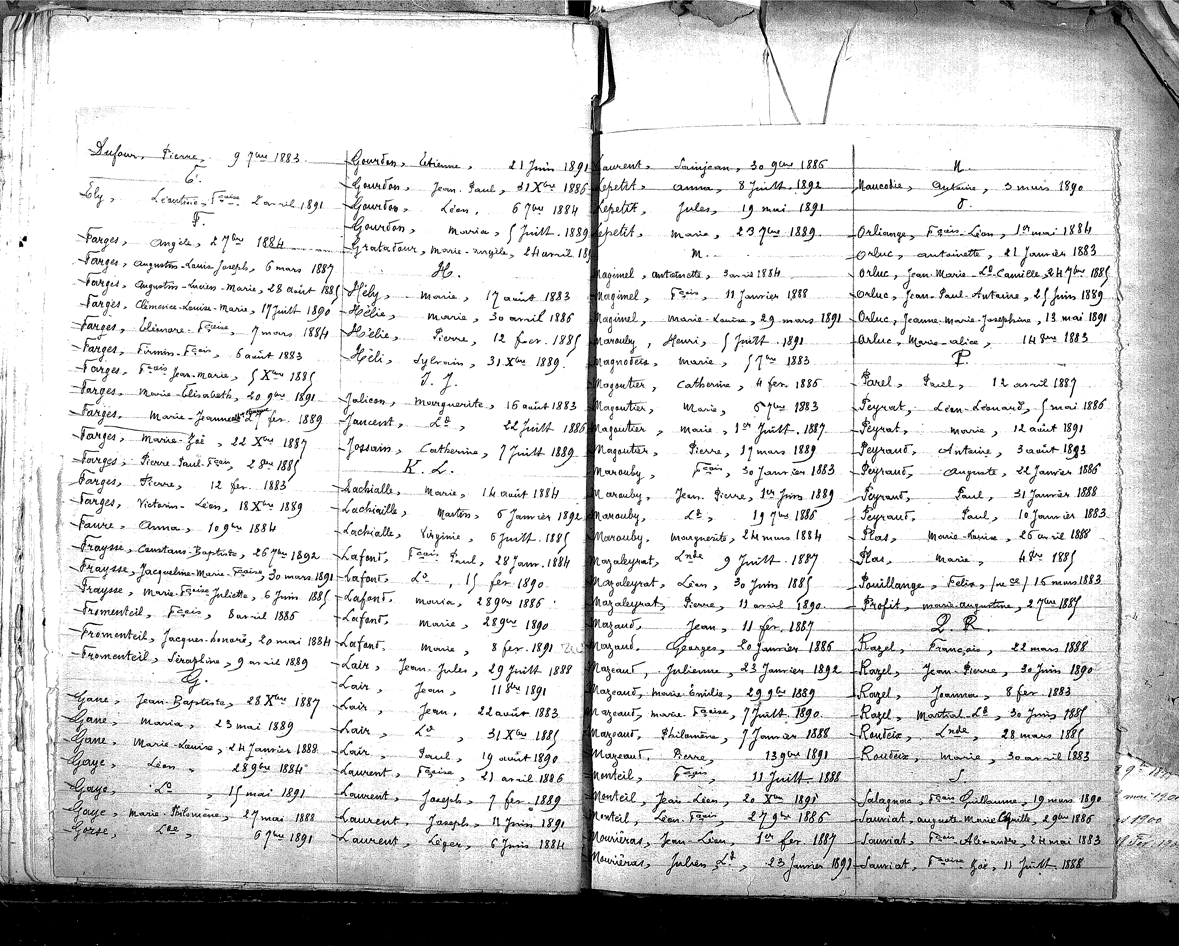 Dufour, Pierre, 9 7bre 1883
E.
Ély, Léontine-Fçoise 2 avril 1891
F.
Farges, Angèle, 27bre 1884
Farges, Augustin-Louis-Joseph, 6 mars 1887
Farges, Augustin-Lucien-Marie, 28 août 1885
Farges, Clémence-Louise-Marie, 17 Juillt 1890
Farges, Eléonore-Fçoise, 7 mars 1884
Farges, Firmin-Fçois, 6 août 1883
Farges, Fçois Jean-Marie, 5 Xbre 1885
Farges, Marie-Elisabeth, 20 9bre 1891
Farges, Marie-Jeanne 27 fer. 1889
Farges, Marie-Zoë, 22 Xbre 1887
Farges, Pierre-Paul-Fçois, 2 8bre 1885
Farges, Pierre, 12 fer. 1883
Farges, Victorin-Léon, 18 Xbre 1889
Faure, Anna, 10 9bre 1884
Fraysse, Constans-Baptiste, 26 7bre 1892
Fraysse, Jacqueline-Marie-Fçoise, 30 mars 1891
Fraysse, Marie-Fçoise Juliette, 6 Juin 1885
Fromenteil, Fçois, 8 avril 1886
Fromenteil, Jacques-honoré, 20 mai 1884
Fromenteil, Séraphine, 9 avril 1889
G.
Gane, Jean-Baptiste, 28 Xbre 1887
Gane, Maria, 23 mai 1889
Gane, Marie-Louise, 24 Janvier 1888
Gaye, Léon, 28 9bre 1884
Gaye, Ld, 15 mai 1891
Gaye, Marie-Philomène, 27 mai 1888
Gorse, 6 7bre 1891
Gourdon, Etienne, 21 Juin 1891
Gourdon, Jean-Paul, 31 Xbre 1886
Gourdon, Léon, 6 7bre 1884
Gourdon, Maria, 5 Juillt. 1889
Gratadour, Marie-Angèle, 24 avril
H.
Héby, Marie, 17 août 1883
Hélie, Marie, 30 avril 1886
Hélie, Pierre, 12 fer. 1885
Héli, Sylvain, 31 Xbre 1889.
I. J.
Jalicon, Marguerite, 16 août 1883
Jaucent, Ld, 22 Juillt 1886
Jossain, Catherine, 7 Juillt 1889
K. L.
Lachialle, Marie, 14 août 1884
Lachialle, Martin, 6 Janvier 1892
Lachialle, Virginie, 6 Juillt. 1885
Lafont, Fçois Paul, 28 Janr. 1884
Lafont, Ld, 15 fer 1890.
Lafond, Maria, 28 9bre 1886.
Lafond, Marie, 28 9bre 1890
Lafont, Marie, 8 fer. 1891
Lair, Jean-Jules, 29 Juillt 1888
Lair, Jean, 11 8bre 1891
Lair, Jean, 22 août 1883
Lair, Ld, 31 Xbre 1885
Lair, Paul, 19 août 1890
Laurent, Fçoise, 21 avril 1886
Laurent, Joseph, 7 fer. 1889
Laurent, Joseph, 11 Juin 1891
Laurent, Léger, 6 Juin 1884
Laurent, Sainjean, 30 9bre 1886
Lepetit, Anna, 8 Juillt. 1892
Lepetit, Jules, 19 mai 1891
Lepetit, Marie, 23 7bre 1889
M.
Maginel, Antoinette, 3 avril 1884
Maginel, Fçois, 11 Janvier 1888
Maginel, Marie-Louise, 29 mars 1891
Marouby, Henri, 5 Juillt. 1891
Magnodeis, Marie, 5 7bre 1883
Magoutier, Catherine, 4 fer. 1886
Magoutier, Marie, 6 7bre 1883
Magoutier, Marie, 1er Juillt. 1887
Magoutier, Pierre, 17 mars 1889
Marouby, Fçois, 30 Janvier 1883
Marouby, Jean-Pierre, 1er Juin 1889
Marouby, Ld, 19 7bre 1886
Marouby, Marguerite, 24 mars 1884
Mazaleyrat, Lnde 9 Juillt. 1887
Mazaleyrat, Léon, 30 Juin 1885
Mazaleyrat, Pierre, 11 avril 1890.
Mazaud, Jean, 11 fer. 1887
Mazaud, Georges, 20 Janvier 1886
Mazeaud, Julienne, 23 Janvier 1892
Mazeaud, Marie-Emilie, 29 9bre 1889
Mazeaud, Marie-Fçoise, 7 Juillt. 1890.
Mazeaud, Philomène, 7 Janvier 1888
Mazeaud, Pierre, 13 9bre 1891
Monteil, Fçois, 11 Juillt. 1888
Monteil, Jean-Léon, 20 Xbre 1891
Monteil, Léon-Fçois, 27 9bre 1886
Mouriéras, Jean-Léon, 1er fer. 1887
Mouriéras, Julien Ld, 23 Janvier 1891
N.
Naucodie, Antoine, 3 mars 1890
O.
Orliange, Fçois-Léon, 1er mai 1884
Orluc, Antoinette, 21 Janvier 1883
Orluc, Jean-Marie-Ld-Camille, 24 7bre 1885
Orluc, Jean-Paul-Antoine, 25 Juin 1889
Orluc, Jeanne-Marie-Joséphine, 13 mai 1891
Orluc, Marie-Alice, 14 8bre 1883
P
Parel, Paul, 12 avril 1887
Peyrat, Léon-Léonard, 5 mai 1886
Peyrat, Marie, 12 août 1891
Peyraud, Antoine, 3 août 1893
Peyraud, Auguste, 22 Janvier 1886
Peyraud, Paul, 31 Janvier 1888
Peyraud, Paul, 10 Janvier 1883
Plas, Marie-Louise, 26 avril 1888
Plas, Marie, 4 8bre 1885
Pouillange, Félix, 16 mars 1883
Profit, Marie-Augustine, 27bre 1885
Q. R.
Razel, François, 22 mars 1888
Razel, Jean-Pierre, 30 Juin 1890
Razel, Joanna, 8 fer 1883
Razel, Martial-Ld, 30 Juin 1885
Routeix, Lnde, 28 mars 1885
Routeix, Marie, 30 avril 1883
S.
Salagnac, Fçois Guillaume, 19 mars 1890
Sauviat, Auguste Marie Cyrille, 29bre 1886
Sauviat, Fçois-Alexandre, 24 mai 1883
Sauviat, Fçoise Zoé, 11 Juillt. 1888